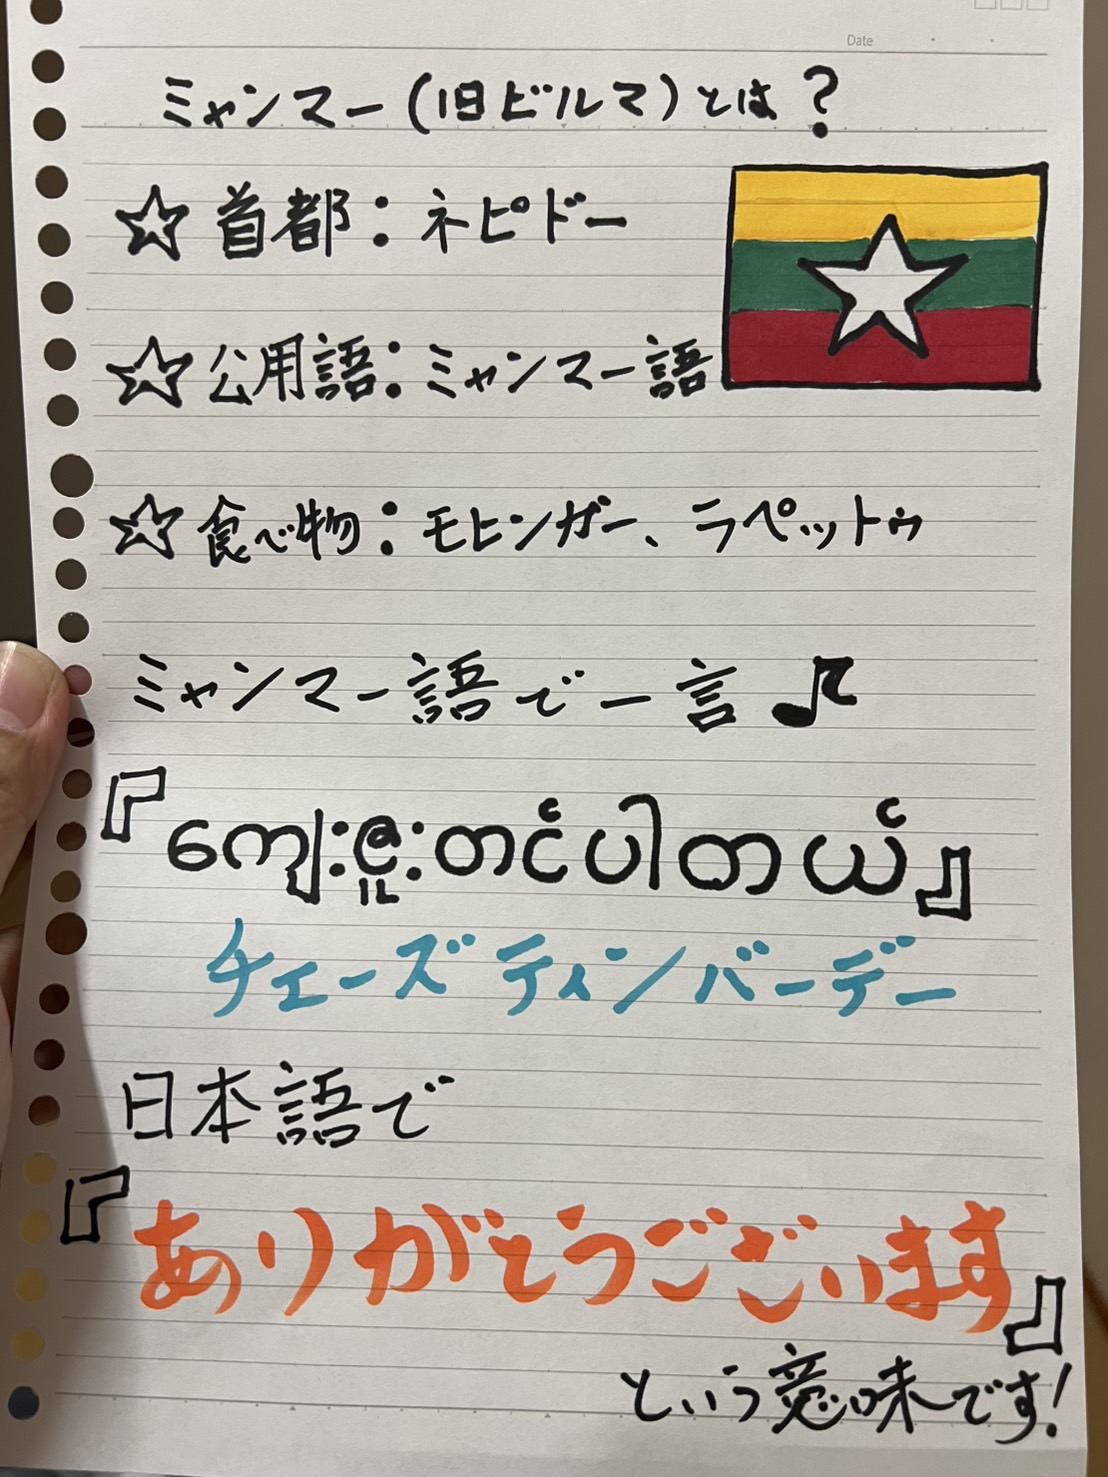 Date
ミャンマー(旧ビルマ)とは?
☆首都:ネピドー
☆公用語:ミャンマー語
☆食べ物:モヒンガー、ラペットゥ
ミャンマー語で一言♪
『ကျေးဇူးတင်ပါတယ်』
チェーズティンバーデー
日本語で
『ありがとうございます』
という意味です!